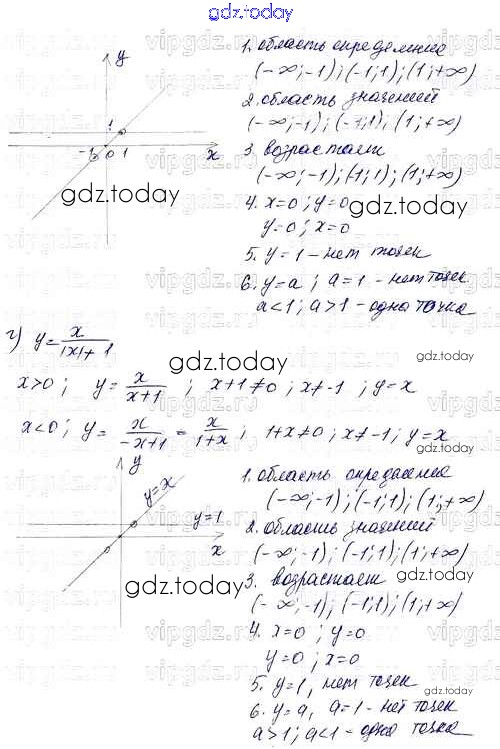 gdz.today
y
1
-1 0 1
x
1. область определения
(-∞;-1);(-1;1);(1;+∞)
2. область значений
(-∞;-1);(-1;1);(1;+∞)
3. возрастает
(-∞;-1);(1;1);(1;+∞)
4. x=0; y=0
y=0; x=0
5. y=1 - нет точек
6. y=a; a=1 - нет точек
a<1; a>1 - одна точка
г) y = x/(|x|+1)
x>0; y = x/(x+1); x+1≠0; x≠-1; y=x
x<0; y = x/(-x+1) = x/(1+x); 1+x≠0; x≠-1; y=x
y
y=x
y=1
x
1. область определения
(-∞;-1);(-1;1);(1;+∞)
2. область значений
(-∞;-1);(-1;1);(1;+∞)
3. возрастает
(-∞;-1);(-1;1);(1;+∞)
4. x=0; y=0
y=0; x=0
5. y=1, нет точек
6. y=a, a=1 - нет точек
a>1; a<1 - одна точка
gdz.today
gdz.today
gdz.today
gdz.today
gdz.today
gdz.today
gdz.today
gdz.today
vipgdz.ru